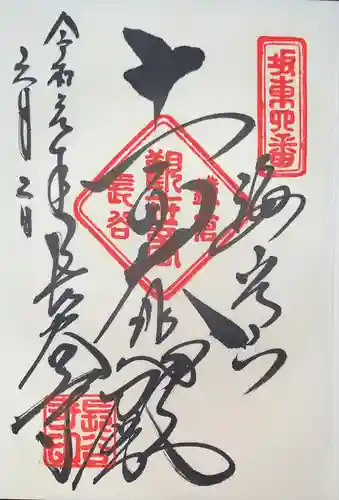 坂東四番
海光山
十一面大悲殿
鎌倉
観世音
長谷
長谷寺
令和元年
六月三日
長谷寺印